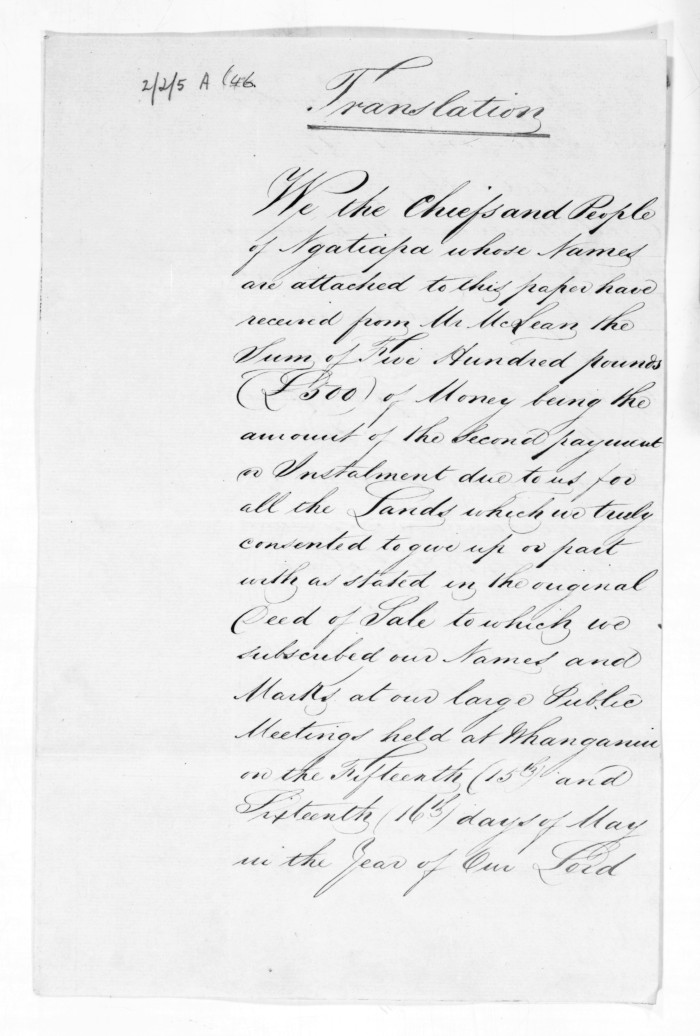 2/2/5 A (46.
Translation
We, the Chiefs and People
of Ngatiapa whose Names
are attached to this paper have
received from Mr McLean the
Sum of Five Hundred pounds
(£500) of Money being the
amount of the Second payment
or Instalment due to us for
all the Lands which we truly
consented to give up or part
with as stated in the original
Deed of Sale to which we
subscribed our Names and
Marks at our large Public
Meetings held at Whanganui
on the Fifteenth (15th) and
Sixteenth (16th) days of May
in the Year of Our Lord